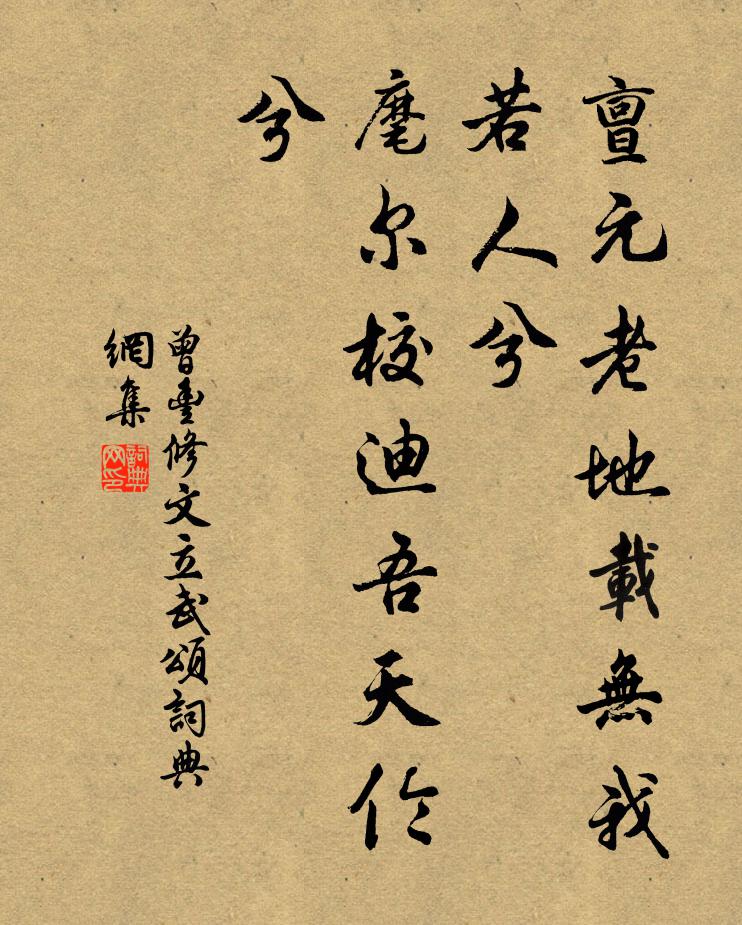 亶元老地載無我
若人兮
麾尔校迪吾天伶
兮
曾豐修文立武頌詞典
網集
詞典
网印